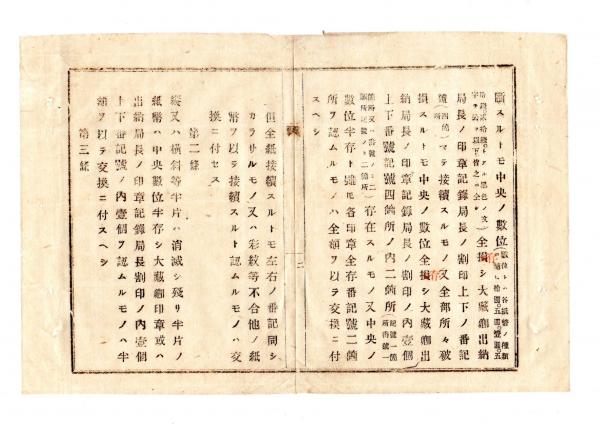 關スルトモ中央ノ數位
全損シ大藏卿出納
局長ノ印章記錄局長ノ割印上下ノ番記
號
マテ接續スルモノ又全部所々破
損スルトモ中央ノ數位全損シ大藏卿出
納局長ノ印章記錄局長ノ割印ノ內壹個
上下番號記號四箇所ノ內二箇所
存在スルモノ又中央ノ
數位半存ト雖モ各印章全存番記號二箇
所ヲ認ムルモノハ全額ヲ以テ交換ニ付
スヘシ
二
但全紙接續スルトモ左右ノ番記同シ
カラサルモノ又ハ彩紋等不合他ノ紙
幣ヲ以テ接續スルト認ムルモノハ交
換ニ付セス
第二條
縱又ハ橫斜等半片ハ消滅シ殘リ半片ノ
紙幣ハ中央數位半存シ大藏卿印章或ハ
出納局長ノ印章記錄局長割印ノ內壹個
上下番記號ノ內壹個ヲ認ムルモノハ半
額ヲ以テ交換ニ付スヘシ
第三條